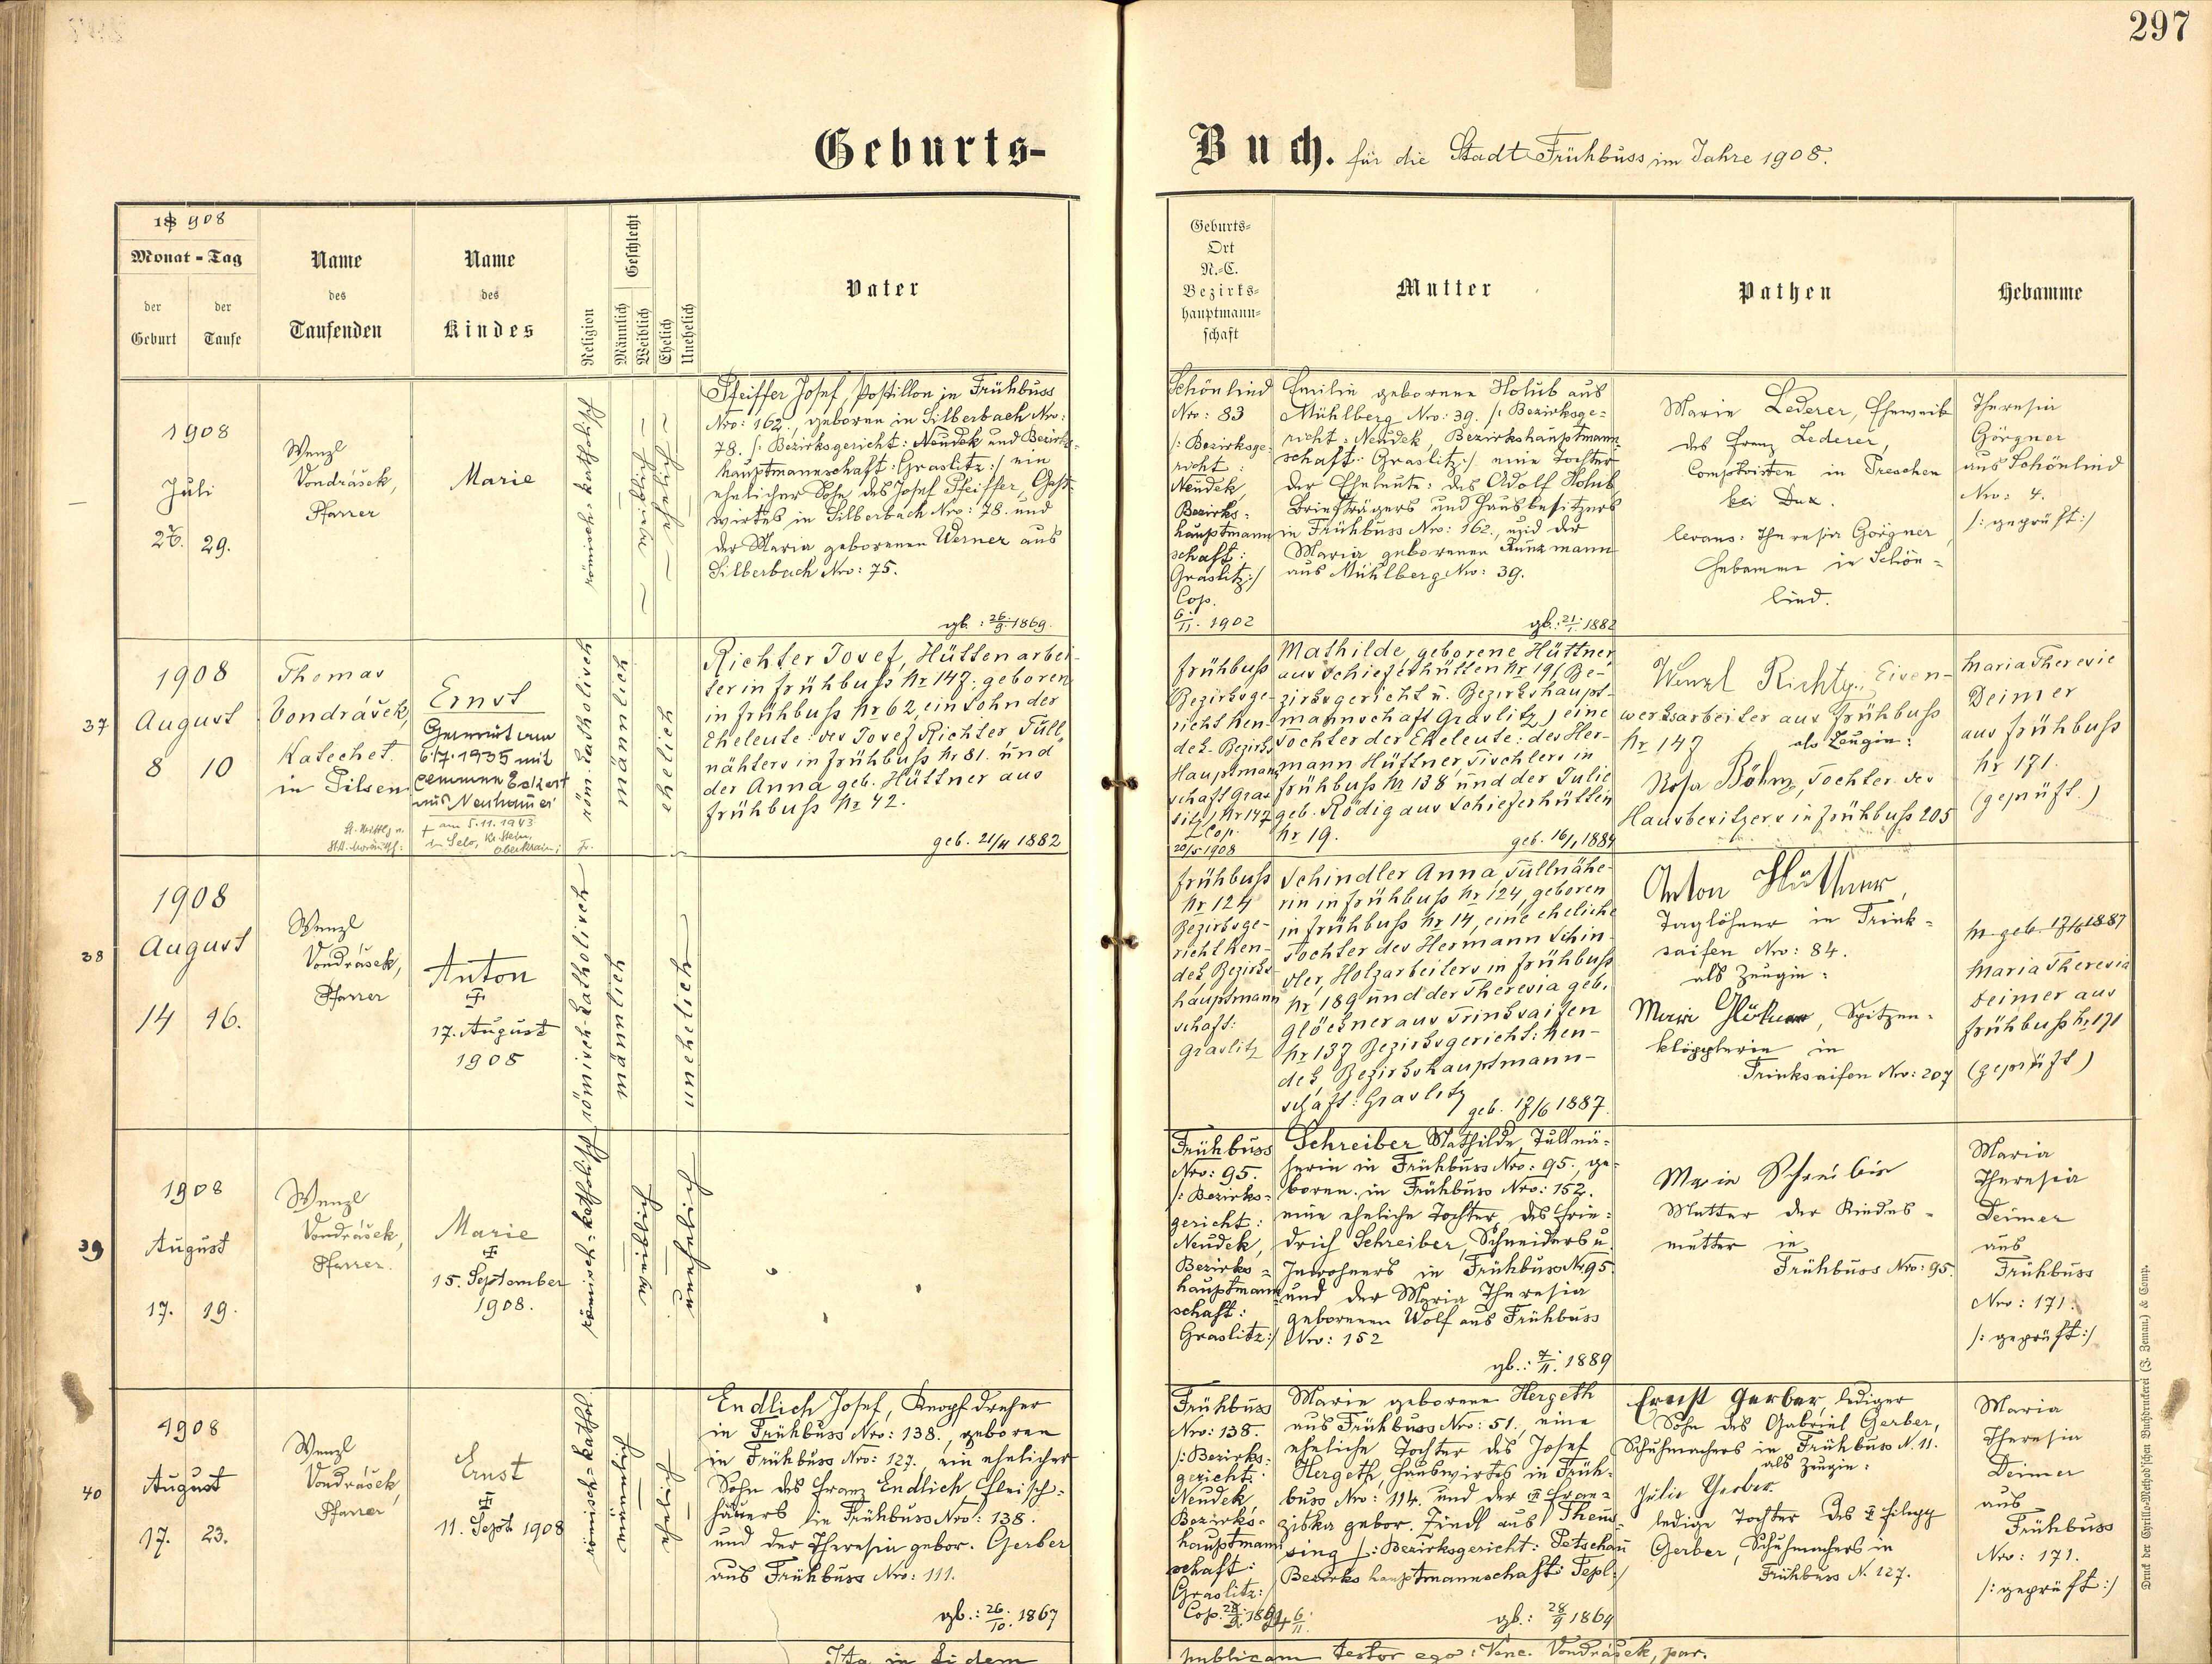 297
Geburts-Buch. für die Stadt Frühbuss im Jahre 1908.
18 908
Monat - Tag
der Geburt
der Taufe
Name
des
Taufenden
Name
des
Kindes
Religion
Geschlecht
Männlich
Weiblich
Ehelich
Unehelich
Vater
Geburts-
Ort
N.-C.
Bezirks-
hauptmann-
schaft
Mutter
Pathen
Hebamme
1908
Juli
29.
Wenzl
Vondrášek,
Pfarrer
Marie
römisch-katholisch
weiblich
ehelich
Pfeiffer Josef, Postillon in Frühbuss
Nro: 162., geboren in Silberbach Nro:
78. /: Bezirksgericht: Neudek und Bezirks-
hauptmannschaft: Graslitz:/ ein
ehelicher Sohn des Josef Pfeiffer, Gast-
wirtes in Silberbach Nro: 78. und
der Maria geborenen Werner aus
Silberbach Nro: 75.
gb.: 26./9. 1869.
Schönlind
Nro: 83
/: Bezirksge-
richt:
Neudek,
Bezirks-
hauptmann
schaft:
Graslitz:/
Cop.
6./11. 1902
Emilie geborene Holub aus
Mühlberg Nro: 39. /: Bezirksge-
richt: Neudek, Bezirkshauptmann-
schaft: Graslitz:/ eine Tochter
der Eheleute: des Adolf Holub
Briefträgers und Hausbesitzers
in Frühbuss Nro: 162., und der
Maria geborenen Kunzmann
aus Mühlberg Nro: 39.
gb.: 21./1. 1882
Marie Lederer, Eheweib
des Franz Lederer,
in Preschen
bei Dux.
levans: Theresia Görgner,
Hebamme in Schön-
lind.
Theresia
Görgner
aus Schönlind
Nro: 4.
/: geprüft:/
37
1908
August
8 10
Thomas
Vondrášek,
Katechet
in Pilsen
Ernst
6.7.1935 mit
† am 5.11.1943
in Selo,
Oberkrain;
röm. katholisch
männlich
ehelich
Richter Josef, Hüttenarbei-
ter in Frühbuß Nr 147; geboren
in Frühbuß Nr 62, ein Sohn der
Eheleute: des Josef Richter Tüll-
nähters in Frühbuß Nr 81. und
der Anna geb. Hüttner aus
Frühbuß Nr 42.
geb. 21/4 1882
Frühbuß
Bezirksge-
richt Neu-
dek-Bezirks
Hauptmann
schaft Gras
litz, Nr 147
Cop.
20/5 1908
Mathilde geborene Hüttner
aus Schieferhütten Nr 19 (Be-
zirksgericht u. Bezirkshaupt-
mannschaft Graslitz) eine
Tochter der Eheleute: des Her-
mann Hüttner Tischlers in
Frühbuß Nr 138 und der Julie
geb. Rödig aus Schieferhütten
Nr 19.
geb. 16/1 1884
Wenzl Richter, Eisen-
werksarbeiter aus Frühbuß
Nr 147
als Zeugin:
Rosa Böhm, Tochter des
Hausbesitzers in Frühbuß 205
Maria Theresie
Deimer
aus Frühbuß
Nr 171.
(geprüft.)
38
1908
August
14 16.
Wenzl
Vondrášek,
Pfarrer
Anton
17. August
1908
römisch-katholisch
männlich
unehelich
Frühbuß
Nr 124
Bezirksge-
richt Neu-
dek, Bezirks
hauptmann
schaft:
Graslitz
Schindler Anna, Tüllnähe-
rin in Frühbuß Nr 124, geboren
in Frühbuß Nr 14, eine eheliche
Tochter des Hermann Schin-
dler, Holzarbeiters in Frühbuß
Nr 189 und der Theresia geb.
Glöckner aus Trinksaifen
Nr 137 Bezirksgericht: Neu-
dek, Bezirkshauptmann-
schaft: Graslitz
geb. 17/6 1887
Anton Hüttner,
Taglöhner in Trink-
saifen Nro: 84.
als Zeugin:
Spitzen-
klöpplerin in
Trinksaifen Nro: 207
geb. 17/6 1887
Maria Theresia
Deimer aus
Frühbuß Nr 171
(geprüft)
39
1908
August
17. 19.
Wenzl
Vondrášek,
Pfarrer.
Marie
15. September
1908.
römisch-katholisch
weiblich
unehelich
Frühbuss
Nro: 95.
/: Bezirks-
gericht:
Neudek,
Bezirks-
hauptmann-
schaft:
Graslitz:/
Schreiber Mathilde, Tüllnä-
herin in Frühbuss Nro: 95., ge-
boren. in Frühbuss Nro: 152.
eine eheliche Tochter des Frie-
drich Schreiber, Schneiders u.
Inwohners in Frühbuss Nr. 95.
und der Maria Theresia
geborenen Wolf aus Frühbuss
Nro: 152
gb.: 7./11. 1889
Marie Schreiber
Mutter der Kindes-
mutter in
Frühbuss Nro: 95.
Maria
Theresia
Deimer
aus
Frühbuss
Nro: 171.
/: geprüft:/
40
1908
August
17. 23.
Wenzl
Vondrášek,
Pfarrer
Ernst
11. Sept. 1908
römisch-kathol.
männlich
ehelich
Endlich Josef, Knopfdreher
in Frühbuss Nro: 138., geboren
in Frühbuss Nro: 127. ein ehelicher
Sohn des Franz Endlich, Fleisch-
hauers in Frühbuss Nro: 138.
und der Theresia gebor. Gerber
aus Frühbuss Nro: 111.
gb.: 26./10. 1867
Frühbuss
Nro: 138.
/: Bezirks-
gericht:
Neudek,
Bezirks-
hauptmann
schaft:
Graslitz:/
Cop.
Marie geborene Hergeth
aus Frühbuss Nro: 51., eine
eheliche Tochter des Josef
Hergeth, Hauswirtes in Früh-
buss Nro: 114. und der Fran-
ziska gebor. Zindl aus Theu-
sing /: Bezirksgericht: Petschau
Bezirkshauptmannschaft: Tepl:/
gb.: 28/9 1869
Ernst Gerber, lediger
Sohn des Gabriel Gerber,
Schuhmachers in Frühbuss N. 11.
als Zeugin:
Julie Gerber
ledige Tochter des Filipp
Gerber, Schuhmachers in
Frühbuss N. 127.
Maria
Theresia
Deimer
aus
Frühbuss
Nro: 171.
/: geprüft:/
Ita in fidem
publicam testor ego: Venc. Vondrášek, par.
Druck der Cyrillo-Method'schen Buchdruckerei (J. Zeman) & Comp.